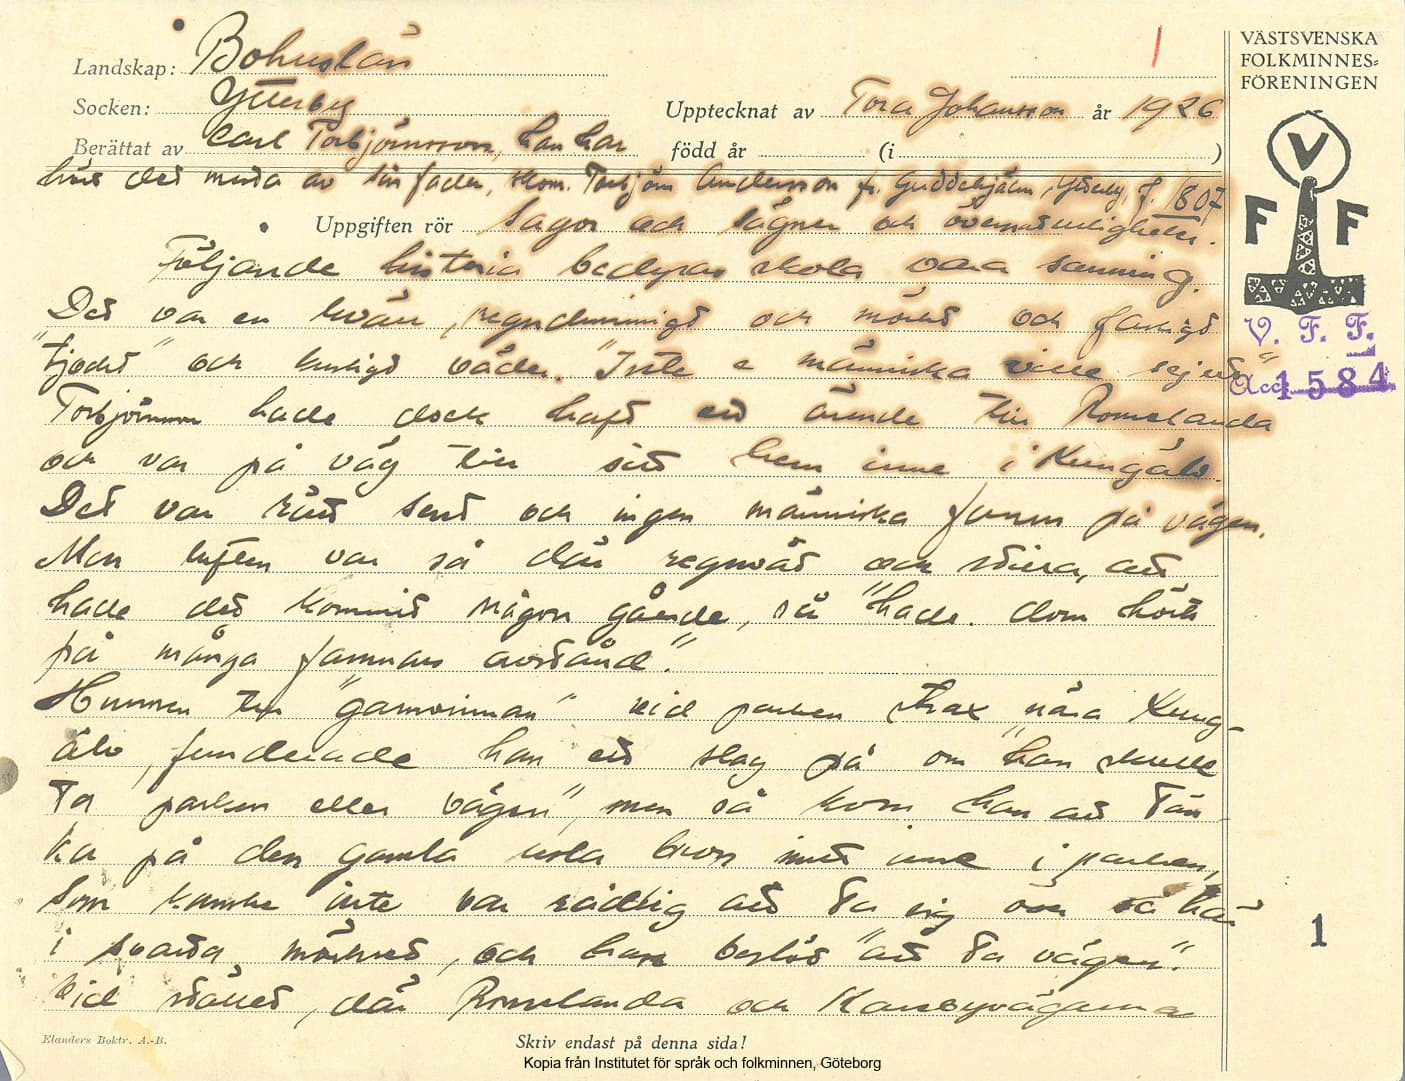 Landskap: Bohuslän
1
VÄSTSVENSKA
FOLKMINNES=
FÖRENINGEN
Socken: Ytterby
Upptecknat av Tora Johansson år 1926
Berättat av Carl Torbjörnsson, han har född år (i )
hört det mesta av sin fader, skom. Torbjörn Andersson fr. Guddehjälm, Ytterby, f. 1807
Uppgiften rör Sagor och sägner och övernaturligheter.
V
F F
Följande historia bedyras skola vara sanning.
Det var en kväll, regndimmigt och mörkt och farligt
V. F. F.
"tjockt" och kusligt väder. "Inte e människa ville sej ut"
Acc 1584
Torbjörnsson hade dock haft ett ärende till Romelanda
och var på väg till sitt hem inne i Kungälv.
Det var rätt sent och ingen människa fanns på vägen.
Men luften var så där regnvåt och stilla, att
hade det kommit någon gående, så "hade dom hörts
på många famnars avstånd."
Hunnen till "gamminnan" vid parken strax nära Kung-
älv, funderade han ett slag på om "han skulle
ta parken eller vägen", men så kom han att tän
ka på den gamla usla bron mitt inne i parken,
som kanske inte var rådlig att ta sig över så här
i svarta mörkret, och han beslöt "att ta vägen".
Vid stället, där Romelanda och Karebyvägarna
1
Elanders Boktr. A.-B.
Skriv endast på denna sida!
Kopia från Institutet för språk och folkminnen, Göteborg